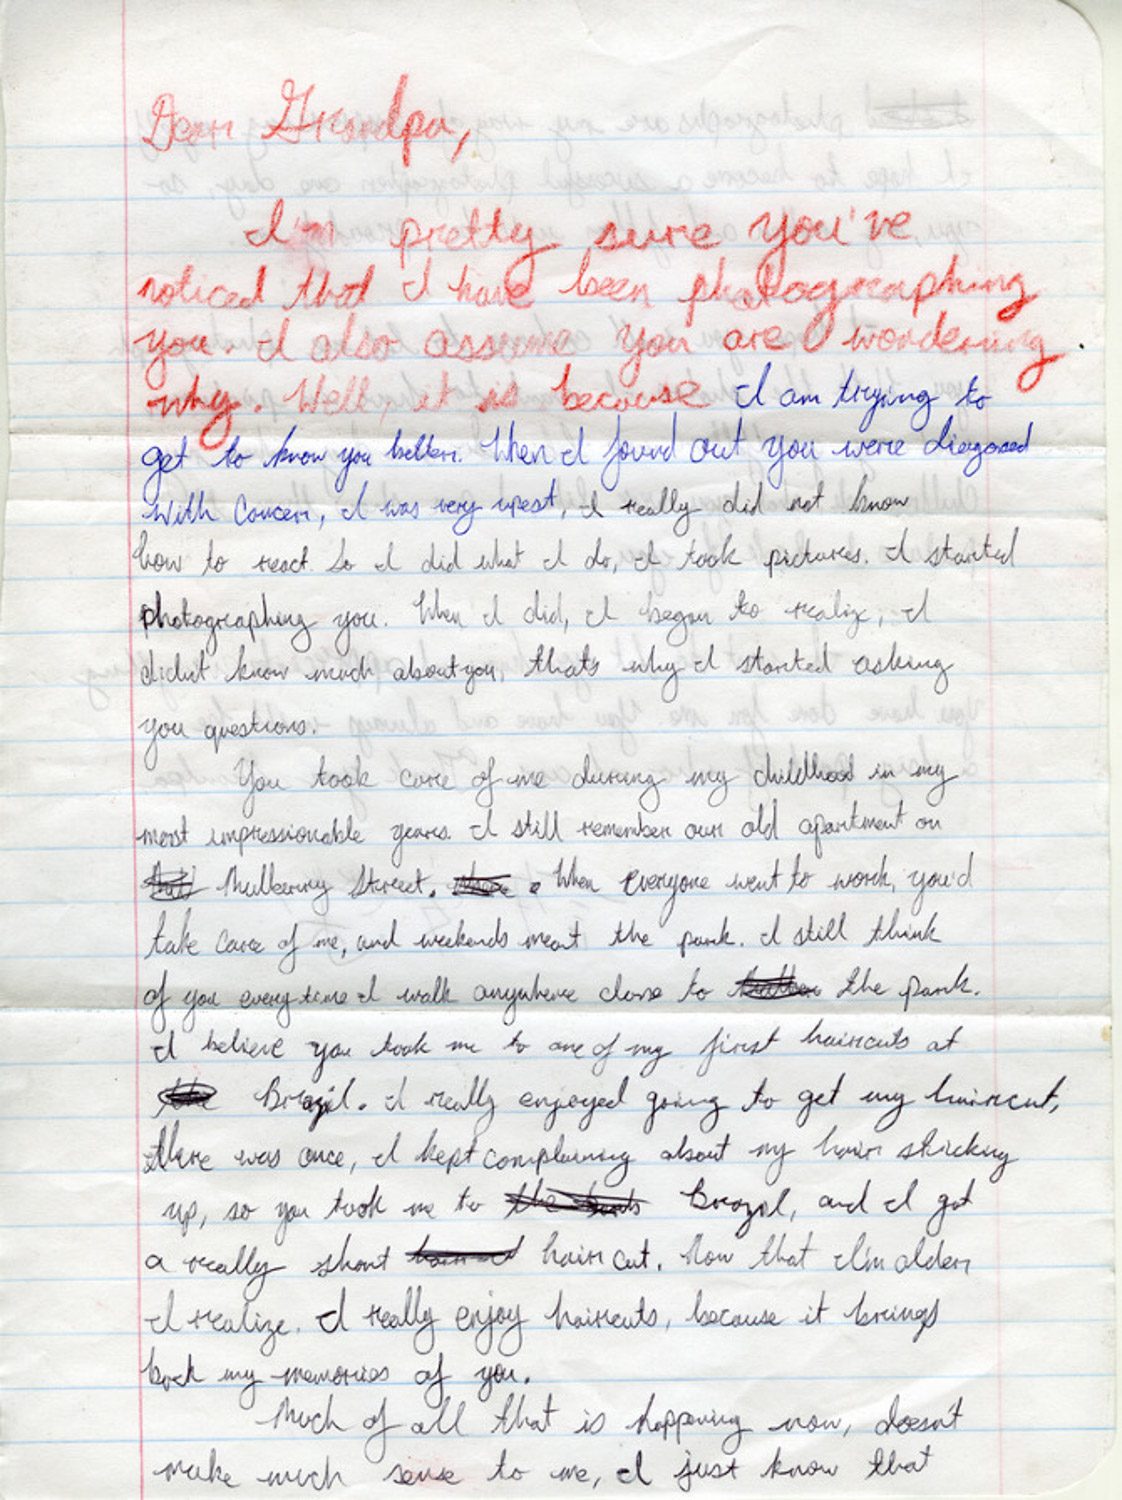 Dear Grandpa,
I'm pretty sure you've
noticed that I have been photographing
you. I also assume you are wondering
why. Well, it is because I am trying to
get to know you better. When I found out you were diagonsed
with Cancer, I was very upest, I really did not know
how to react. So I did what I do, I took pictures. I started
photographing you. When I did, I began to realize, I
didn't know much about you, thats why I started asking
you questions.
You took care of me during my childhood in my
most impressionable years. I still remember our old apartment on
Mulberry Street. When everyone went to work, you'd
take care of me, and weekends meant the park. I still think
of you everytime I walk anywhere close to the park.
I believe you took me to one of my first haircuts at
Brazil. I really enjoyed going to get my haircut,
there was once, I kept complaining about my hair sticking
up, so you took me to Brazil, and I got
a really short hair cut. Now that I'm older
I realize. I really enjoy haircuts, because it brings
back my memories of you.
Much of all that is happening now, doesn't
make much sense to me, I just know that